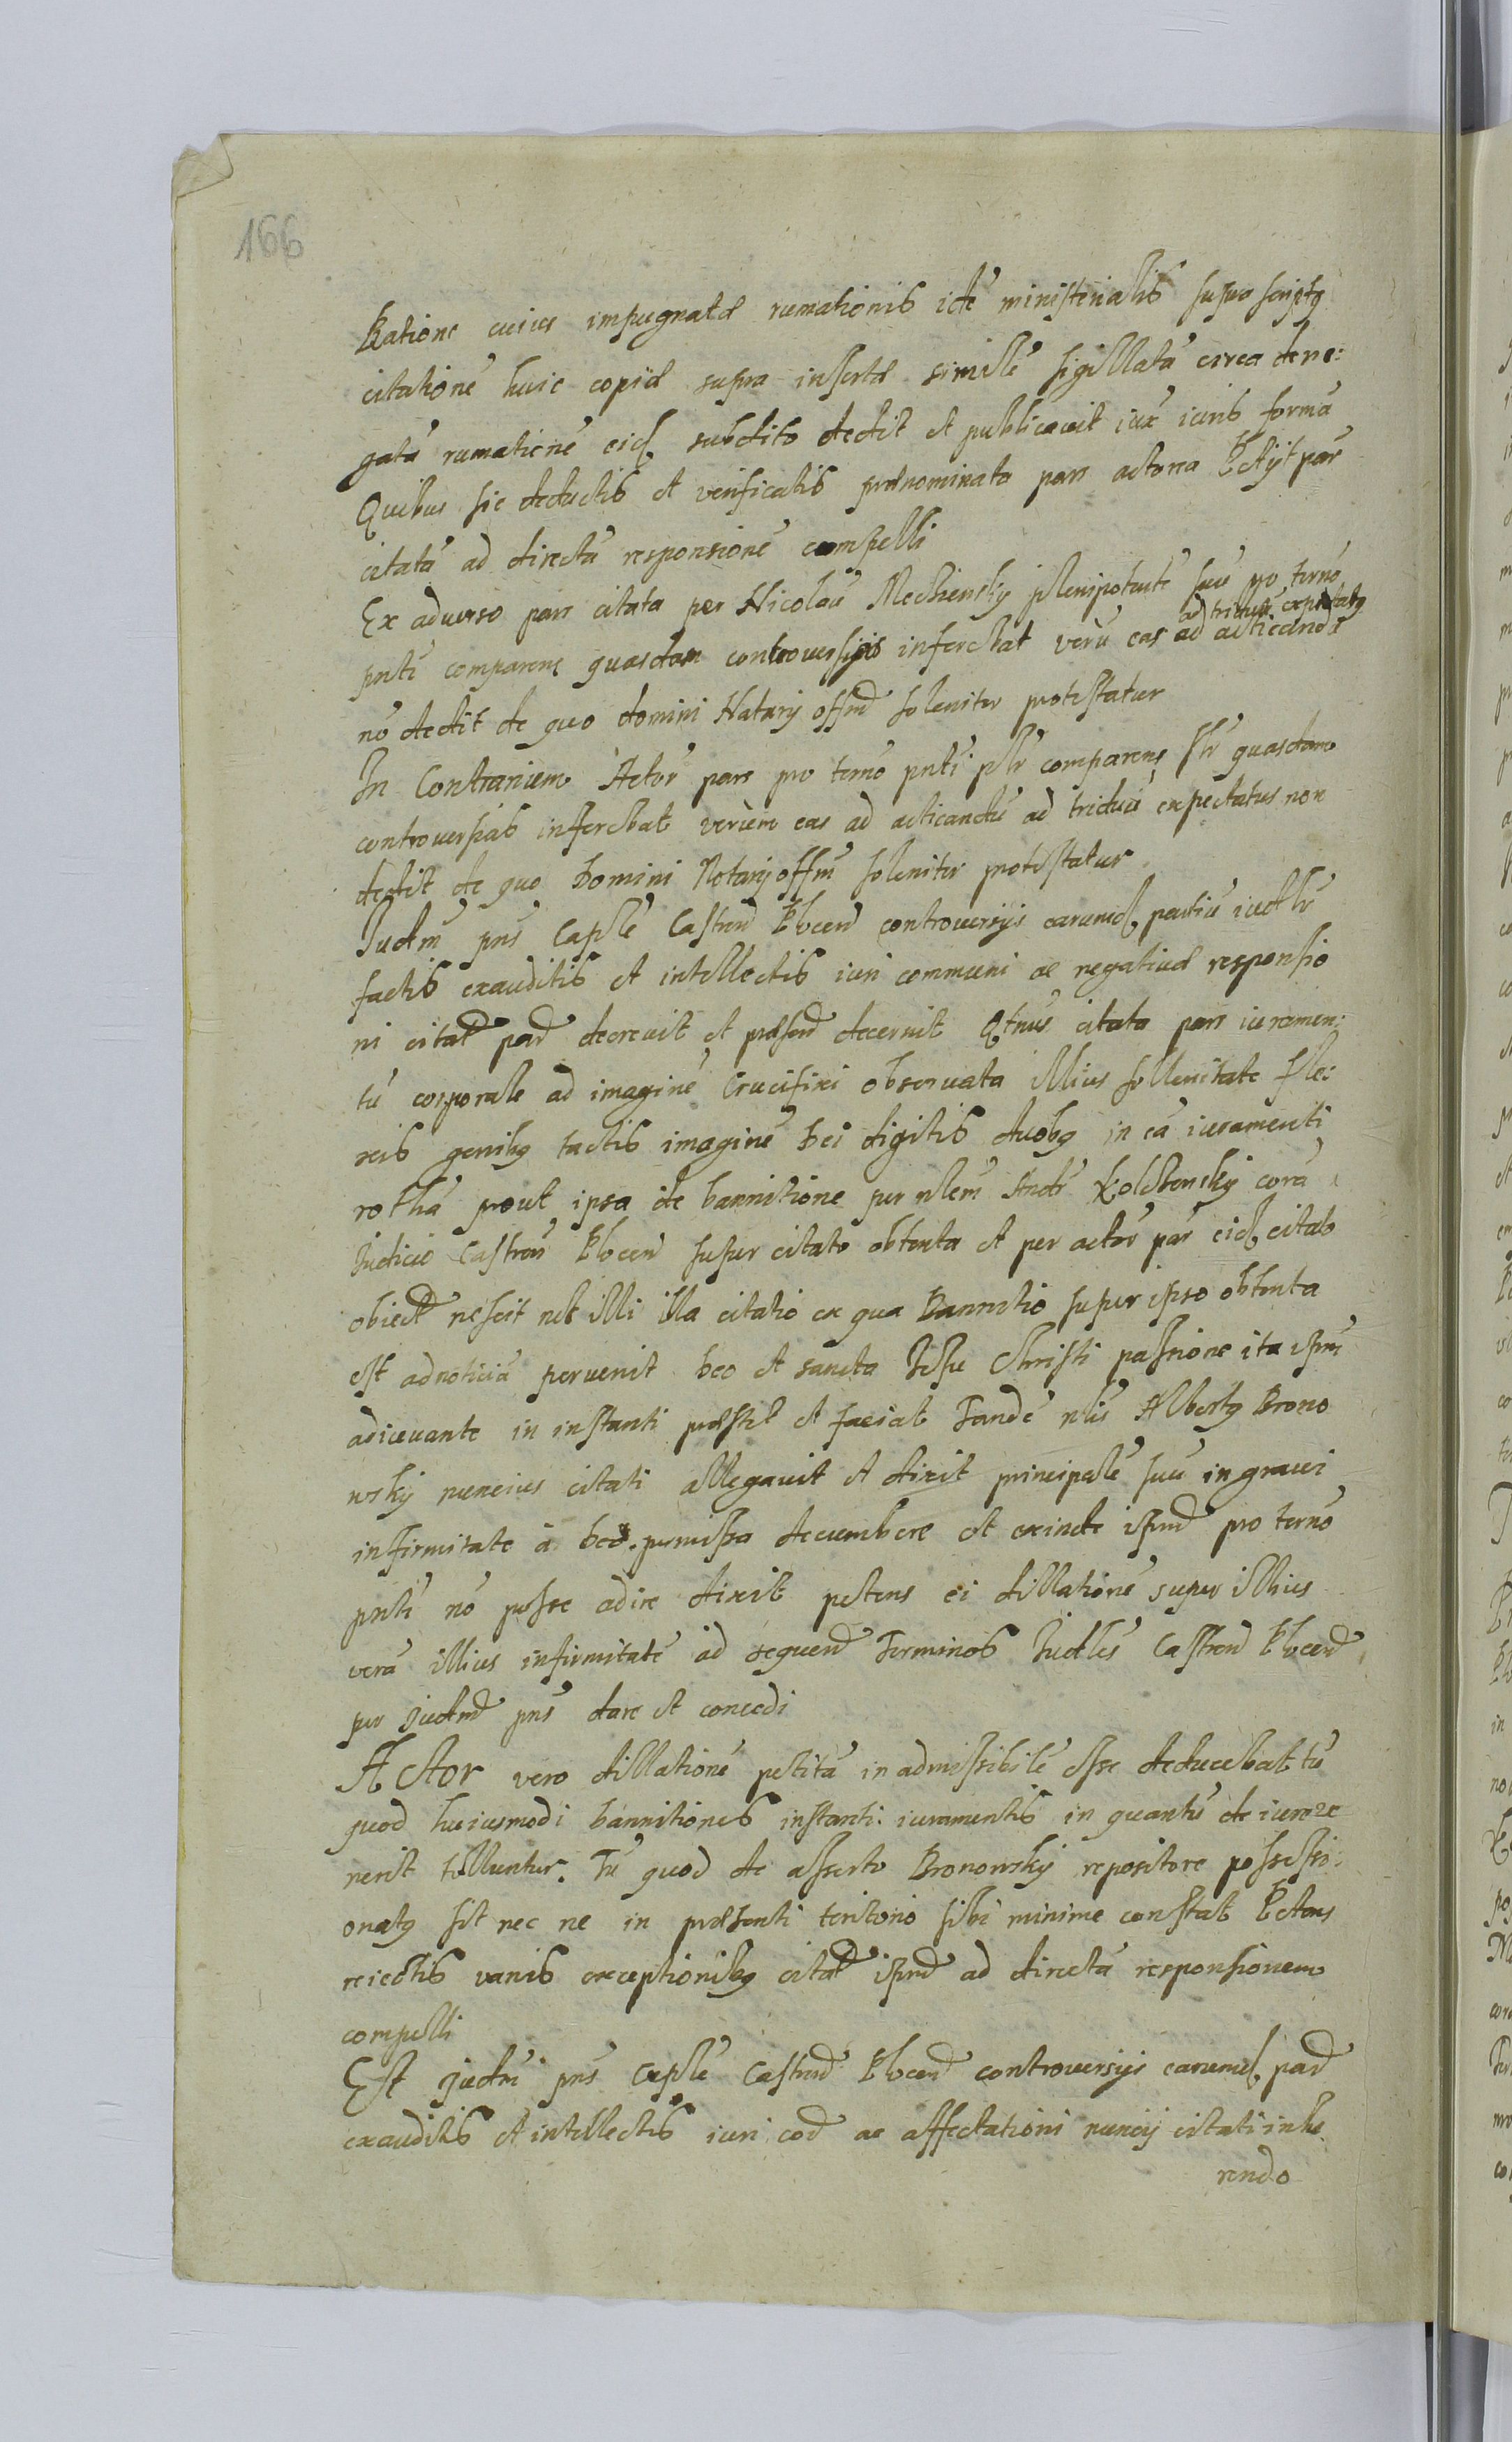 166
Ratione cuius impugnatæ rumationis idē ministerialis supra scriptꝯ
citationē huic copiæ supra insertæ similē sigillatā circa dene:
gatā rumationē eid. subdito dedit et publicavit iux iuris formā
Quibus sic deductis et verificatis prænominata pars actorea petijt par
citatā ad directā responsionē compelli
Ex adverso pars citata per Nicolaū plenipotente suū pro termō
ad triduū expectatꝯ
pnti comparens quasdam controversijs inferebat verū eas ad acticandū
nō dedit de quo domini Notarij offm soleniter protestatur
In Contrarium Actor pars pro termō pnti plr comparens Slr quasdam
controversias inferebat verūm eas ad acticandū ad triduū expectatus non
dedit de quo Domini Notarij offm soleniter protestatur
Judm pns Caple Castren Plocen controversijs earumd partiū iudlr
factis exauditis et intellectis iuri communi ac negativæ responsio
ni citat par decrevit et præsen decernit Qtnus citata pars iuramen:
tū corporale ad imaginē Crucifixi observata illius sollenitate fle:
xis genibꝯ tactis imaginē Dei digitis duobꝯ in eā iuramenti
rothā prout ipsa de bannitione per nlem corā
Judicio Castren Plocen super citato obtenta et per actor par eid citato
obiect nescit nec illi illa citatio ex qua Bannitio super ipso obtenta
est ad noticiā pervenit Deo et sancta Jesu Christi passione ita ipm
adiuvante in instanti præstet et faciat Tandē nlis Albertꝯ Brono
wsky nuncius citati allegavit et dixit principalē suū in gravi
infirmitate à Deo permissa decumbere et exinde ipm pro termō
pnti nō posse adire dixit petens ei dillationē super illius
verā illius infirmitatē ad sequen Terminos Judles Castren Plocen
per Judm pns dare et concedi
Actor vero dillationē petitā in admissibilē esse deducebat tū
quod huiusmodi bannitiones instanti iuramentis in quantū de iure ve
nerit tolluntur. Tū quod de asserto Bronowsky repositore possessi:
onatꝯ sit nec ne in præsenti teritorio sibi minime constat Petens
reiectis vanis exceptionibꝯ citat ipm ad directā responsionem
compelli
Est Judm pns Caple Castren Plocen controversijs earumd par
exauditis et intellectis iuri coō ac affectationi nuncij citati inhæ
rendo